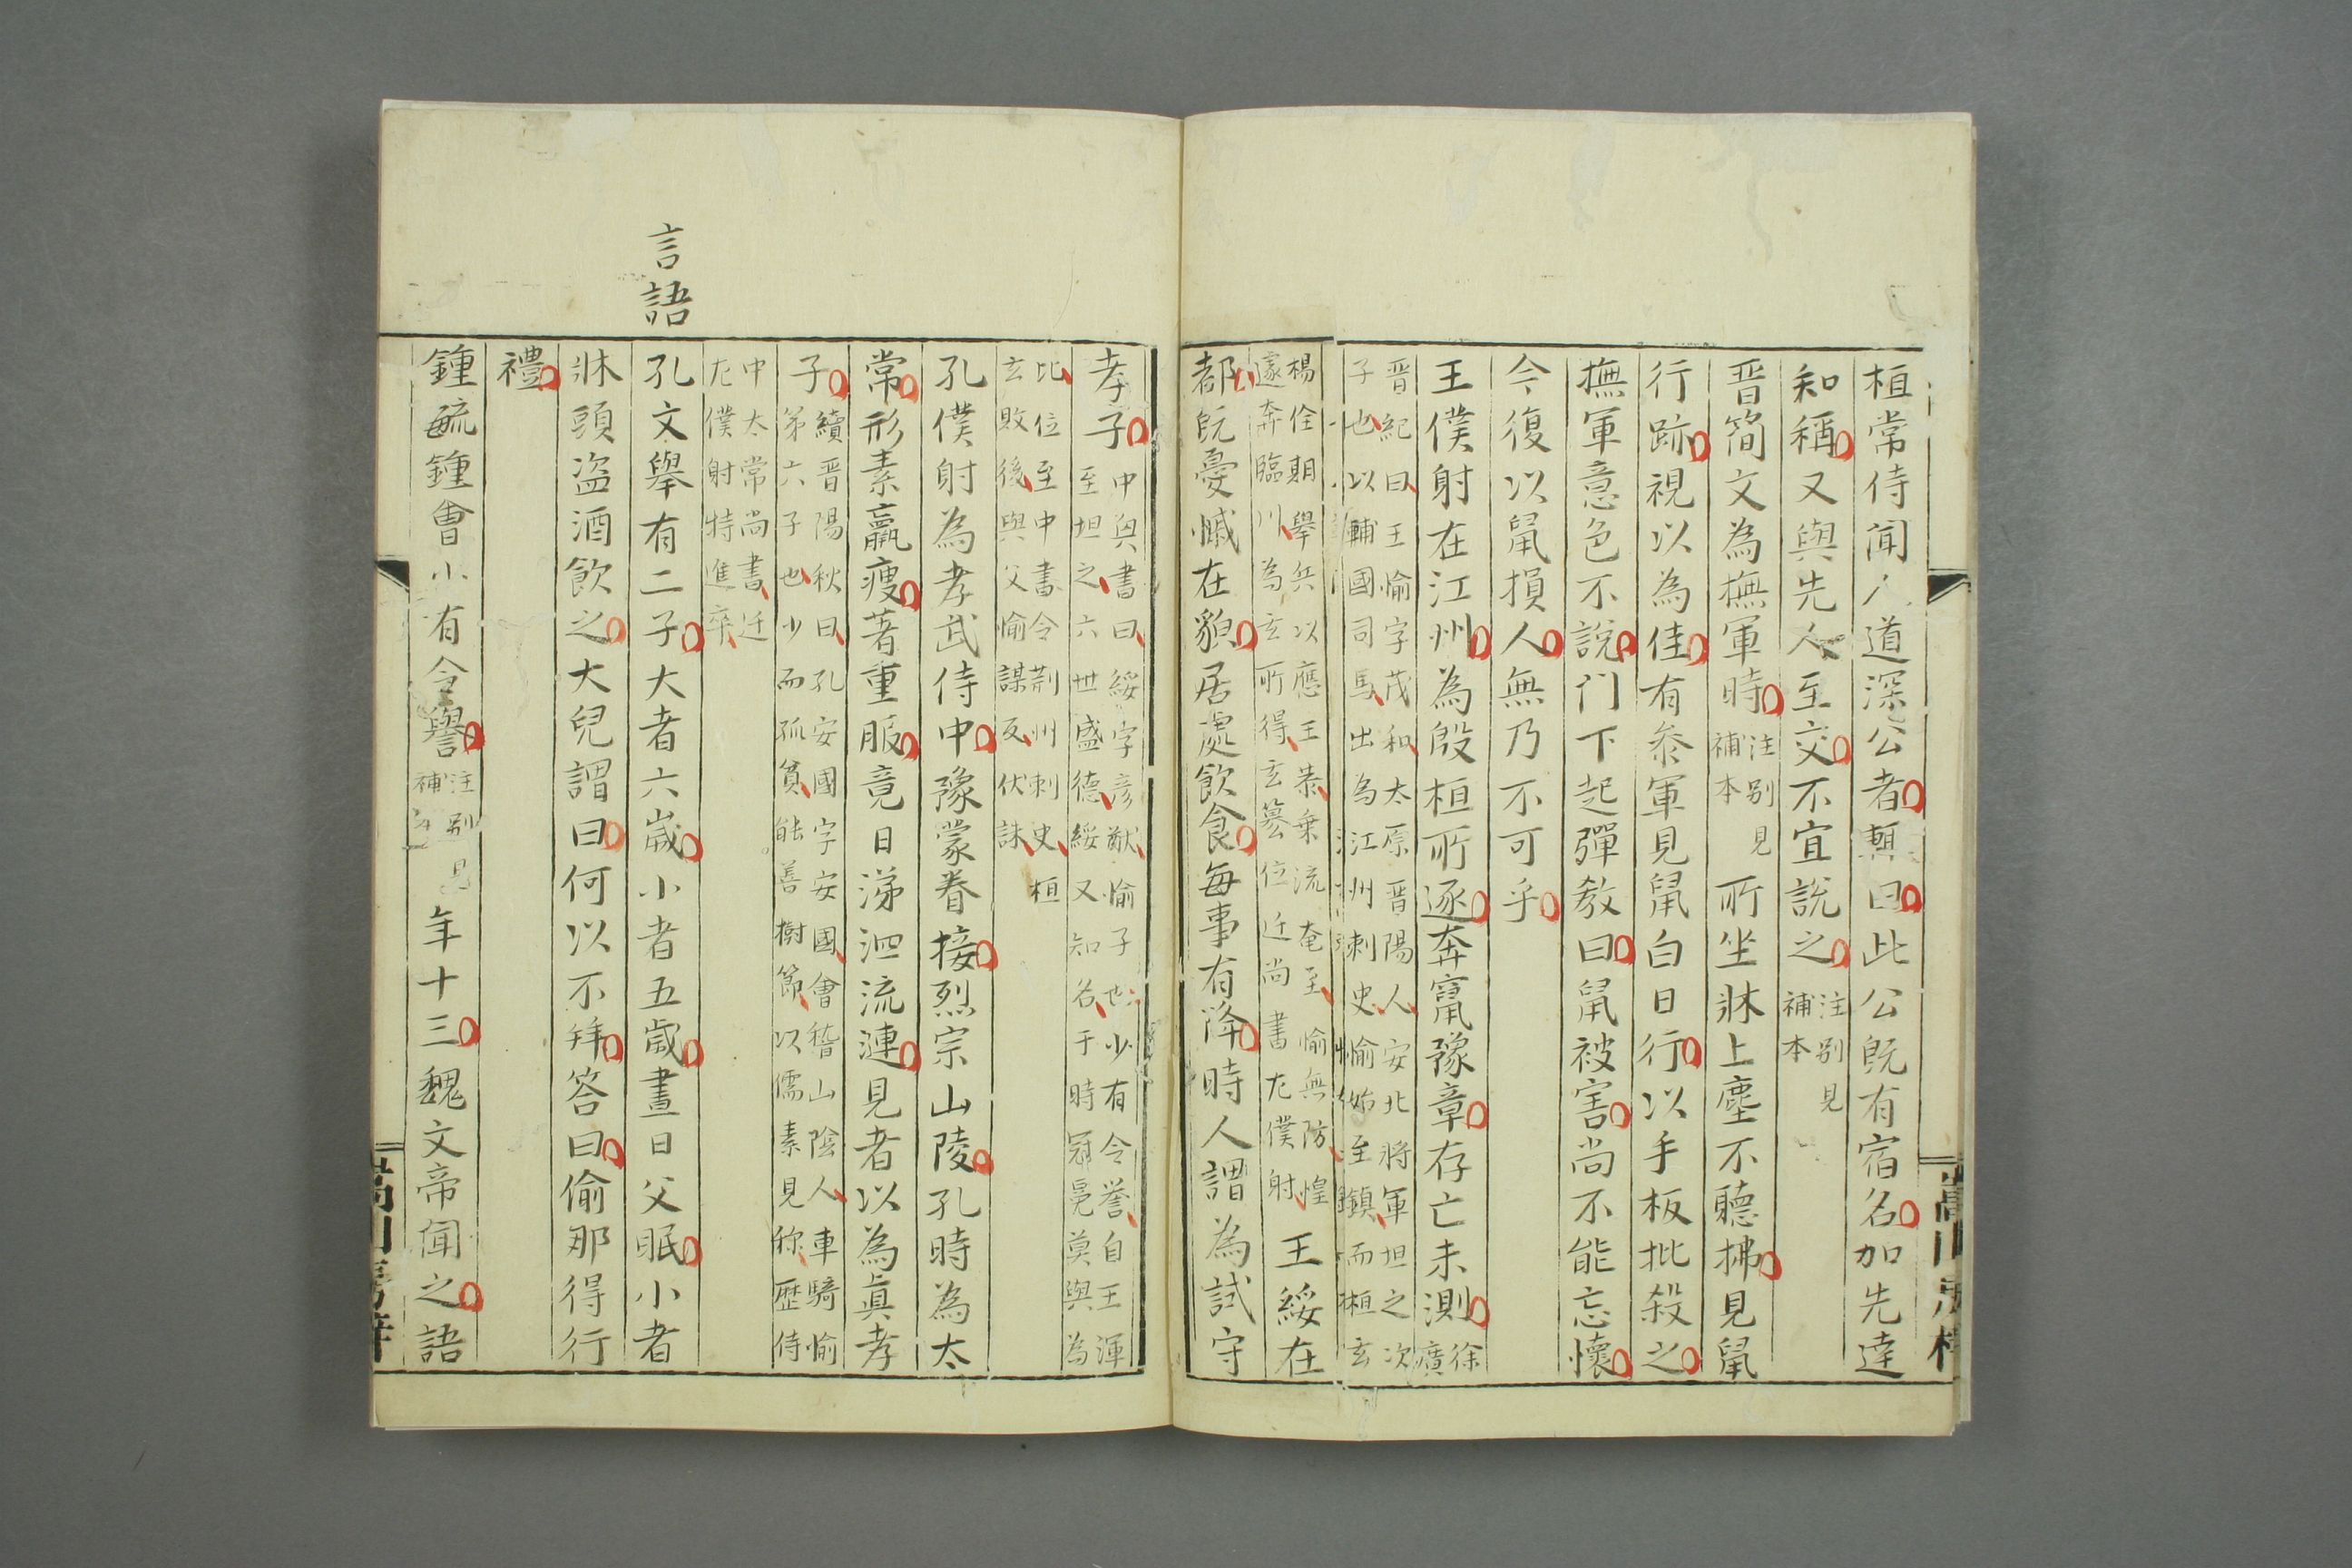 桓常侍聞人道深公者輒曰此公旣有宿名加先達
知稱又與先人至交不宜說之
注别見
補本
晋簡文為撫軍時
注别見
補本
所坐牀上塵不聽拂見鼠
行跡視以為佳有叅軍見鼠白日行以手板批殺之
撫軍意色不說门下起彈教曰鼠被害尚不能忘懷
今復以鼠損人無乃不可乎
王僕射在江州為殷桓所逐奔竄豫章存亡未測
徐
廣
晋紀曰王愉字茂和太原晋陽人安北將軍坦之次
子也以輔國司馬出為江州刺史愉始至鎮而桓玄
楊佺期舉兵以應王恭乗流奄至愉無防惶
遽奔臨川為玄所得玄簒位迁尚書左僕射
王綏在
都旣憂慽在貌居處飲食每事有降時人謂為試守
孝子
中興書曰綏字彦猷愉子也少有令誉自王渾
至坦之六世盛德綏又知名于時冠冕莫與為
比位至中書令荆州刺史桓
玄敗後與父愉謀反伏誅
孔僕射為孝武侍中豫蒙眷接烈宗山陵孔時為太
常形素羸瘦著重服竟日涕泗流漣見者以為眞孝
子
續晋陽秋曰孔安國字安國會稽山陰人車騎愉
苐六子也少而孤貧能善樹節以儒素見称歷侍
中太常尚書迁
左僕射特進卒
言語
孔文舉有二子大者六歳小者五歳晝日父眠小者
牀頭盗酒飲之大兒謂曰何以不拜答曰偷那得行
禮
鍾毓鍾會小有令譽
注别見
補
年十三魏文帝聞之語